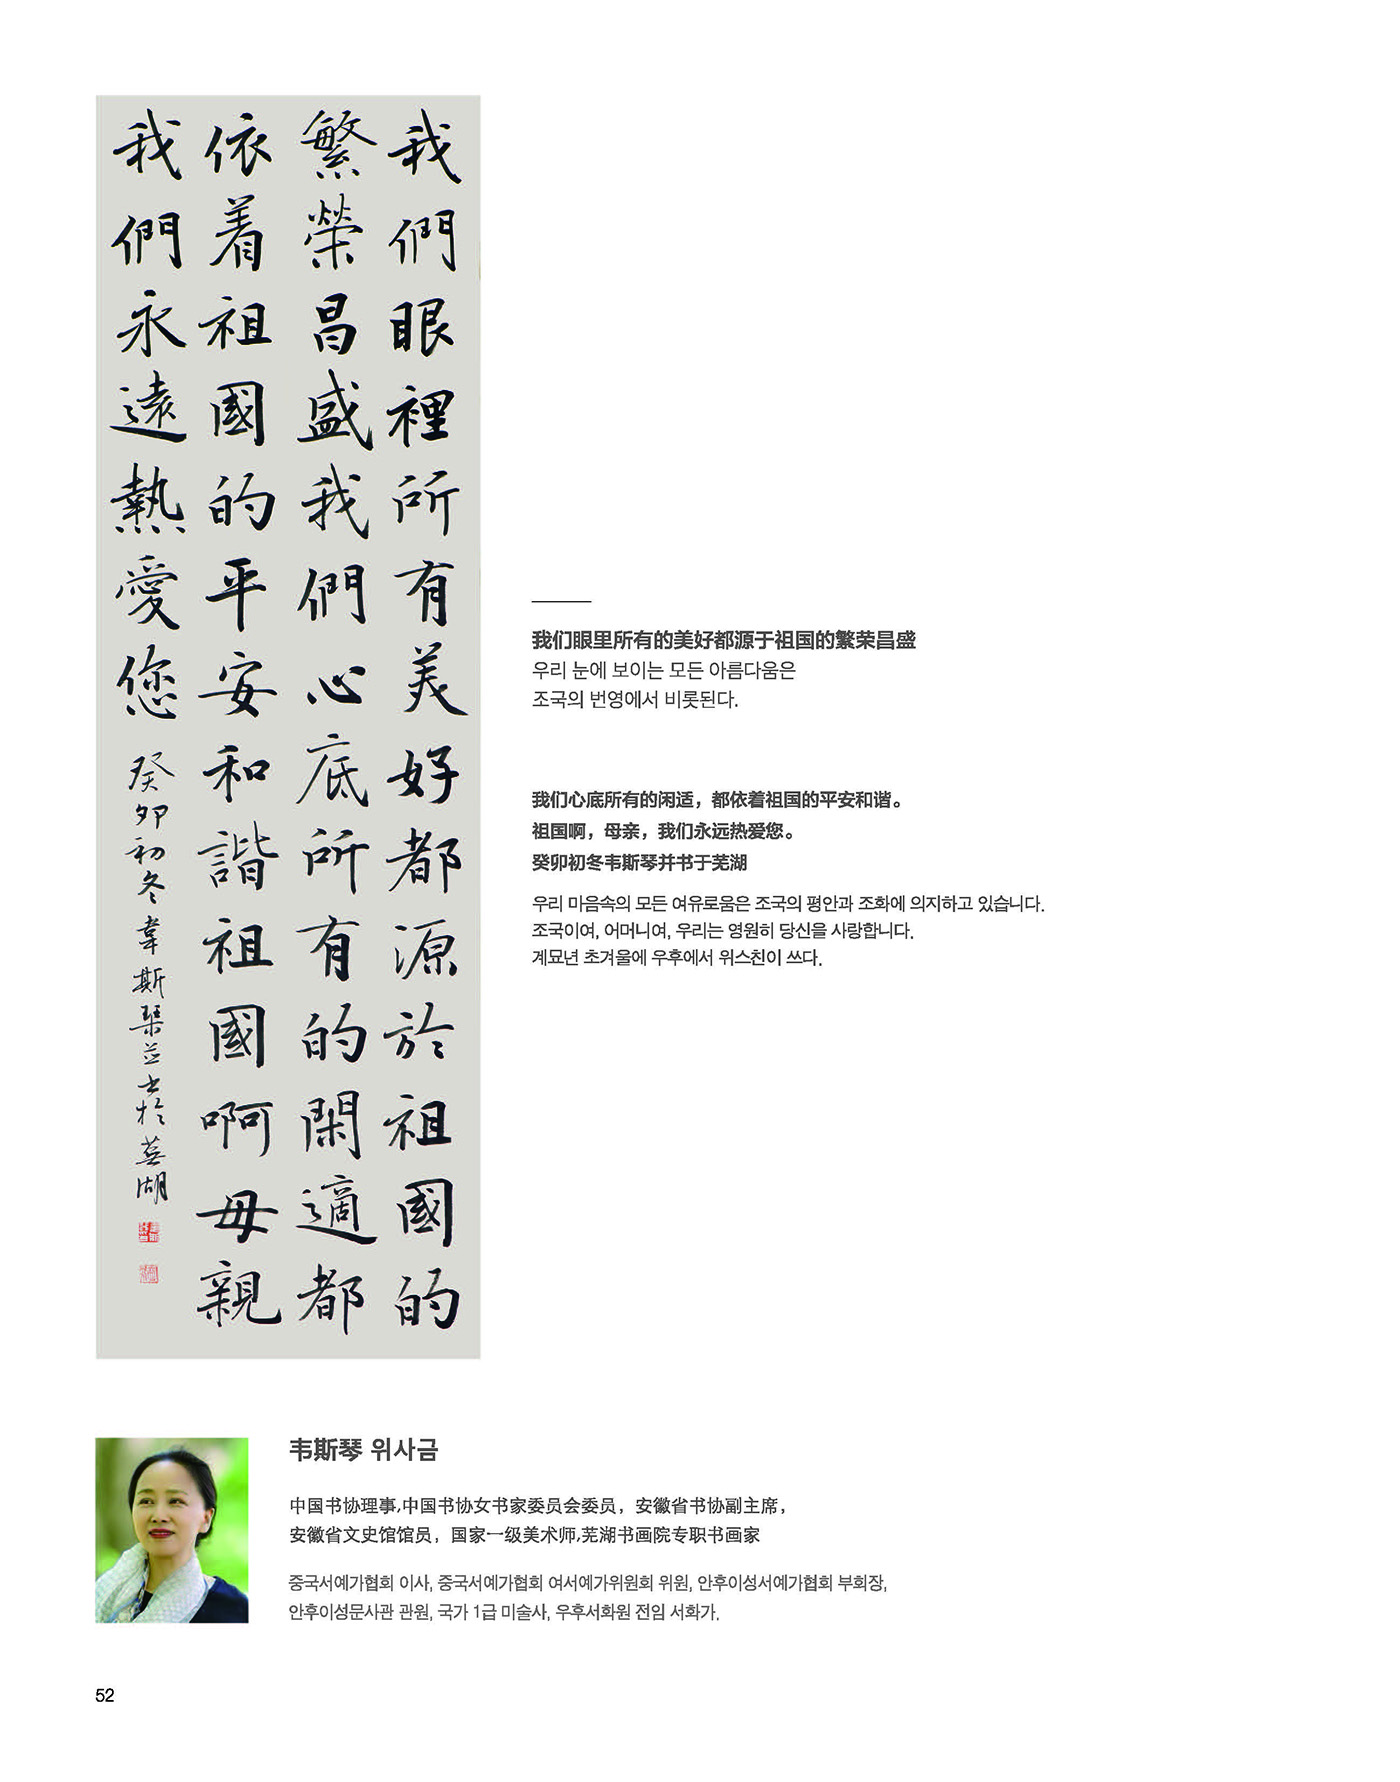 我們眼裡所有美好都源於祖國的
繁榮昌盛我們心底所有的閑適都
依着祖國的平安和諧祖國啊母親
我們永遠熱愛您
癸卯初冬韋斯琴並书於蕪湖
我们眼里所有的美好都源于祖国的繁荣昌盛
우리 눈에 보이는 모든 아름다움은
조국의 번영에서 비롯된다.
我们心底所有的闲适，都依着祖国的平安和谐。
祖国啊，母亲，我们永远热爱您。
癸卯初冬韦斯琴并书于芜湖
우리 마음속의 모든 여유로움은 조국의 평안과 조화에 의지하고 있습니다.
조국이여, 어머니여, 우리는 영원히 당신을 사랑합니다.
계묘년 초겨울에 우후에서 위스친이 쓰다.
韦斯琴 위사금
中国书协理事,中国书协女书家委员会委员，安徽省书协副主席，
安徽省文史馆馆员，国家一级美术师,芜湖书画院专职书画家
중국서예가협회 이사, 중국서예가협회 여서예가위원회 위원, 안후이성서예가협회 부회장,
안후이성문사관 관원, 국가 1급 미술사, 우후서화원 전임 서화가.
52